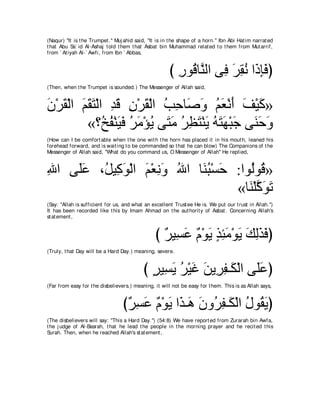 (Naqur) "It is the Trumpet.'' Mujahid said, "It is in the shape of a horn.'' Ibn Abi Hatim narrated
that Abu Sa`id Al-Ashaj told them that Asbat bin Muhammad related to them from Mutarrif,
from `Atiyah Al-`Awfi, from Ibn `Abbas,
﴿ فَإِذَا نُقِرَ فِى النَّاقُورِ ﴾
(Then, when the Trumpet is sounded.) The Messenger of Allah said,
«كَيْفَ أَنْعَمُ وَصَاحِبُ الْقَرْنِ قَدِ الْتَقَمَ الْقَرْنَ
وَحَنَى جَبْهَتَهُ يَنْتَظِرُ مَتَى يُؤْمَرُ فَيَنْفُخُ؟»
(How can I be comfortable when the one with the horn has placed it in his mouth, leaned his
forehead forward, and is waiting to be commanded so that he can blow) The Companions of the
Messenger of Allah said, "What do you command us, O Messenger of Allah'' He replied,
«قُولُوا: حَسْبُنَا اللهُ وَنِعْمَ الْوَكِيلُ، عَلَى اللهِ
تَوَكَّلْنَا»
(Say: "Allah is sufficient for us, and what an excellent Trustee He is. We put our trust in Allah.'')
It has been recorded like this by Imam Ahmad on the authority of Asbat. Concerning Allah's
statement,
﴿ فَذَلِكَ يَوْمَئِذٍ يَوْمٌ عَسِيرٌ ﴾
(Truly, that Day will be a Hard Day.) meaning, severe.
﴿ عَلَى الْكَـفِرِينَ غَيْرُ يَسِيرٍ ﴾
(Far from easy for the disbelievers.) meaning, it will not be easy for them. This is as Allah says,
﴿يَقُولُ الْكَـفِرُونَ هَـذَا يَوْمٌ عَسِرٌ﴾
(The disbelievers will say: "This a Hard Day.'') (54:8) We have reported from Zurarah bin Awfa,
the judge of Al-Basrah, that he lead the people in the morning prayer and he recited this
Surah. Then, when he reached Allah's statement,